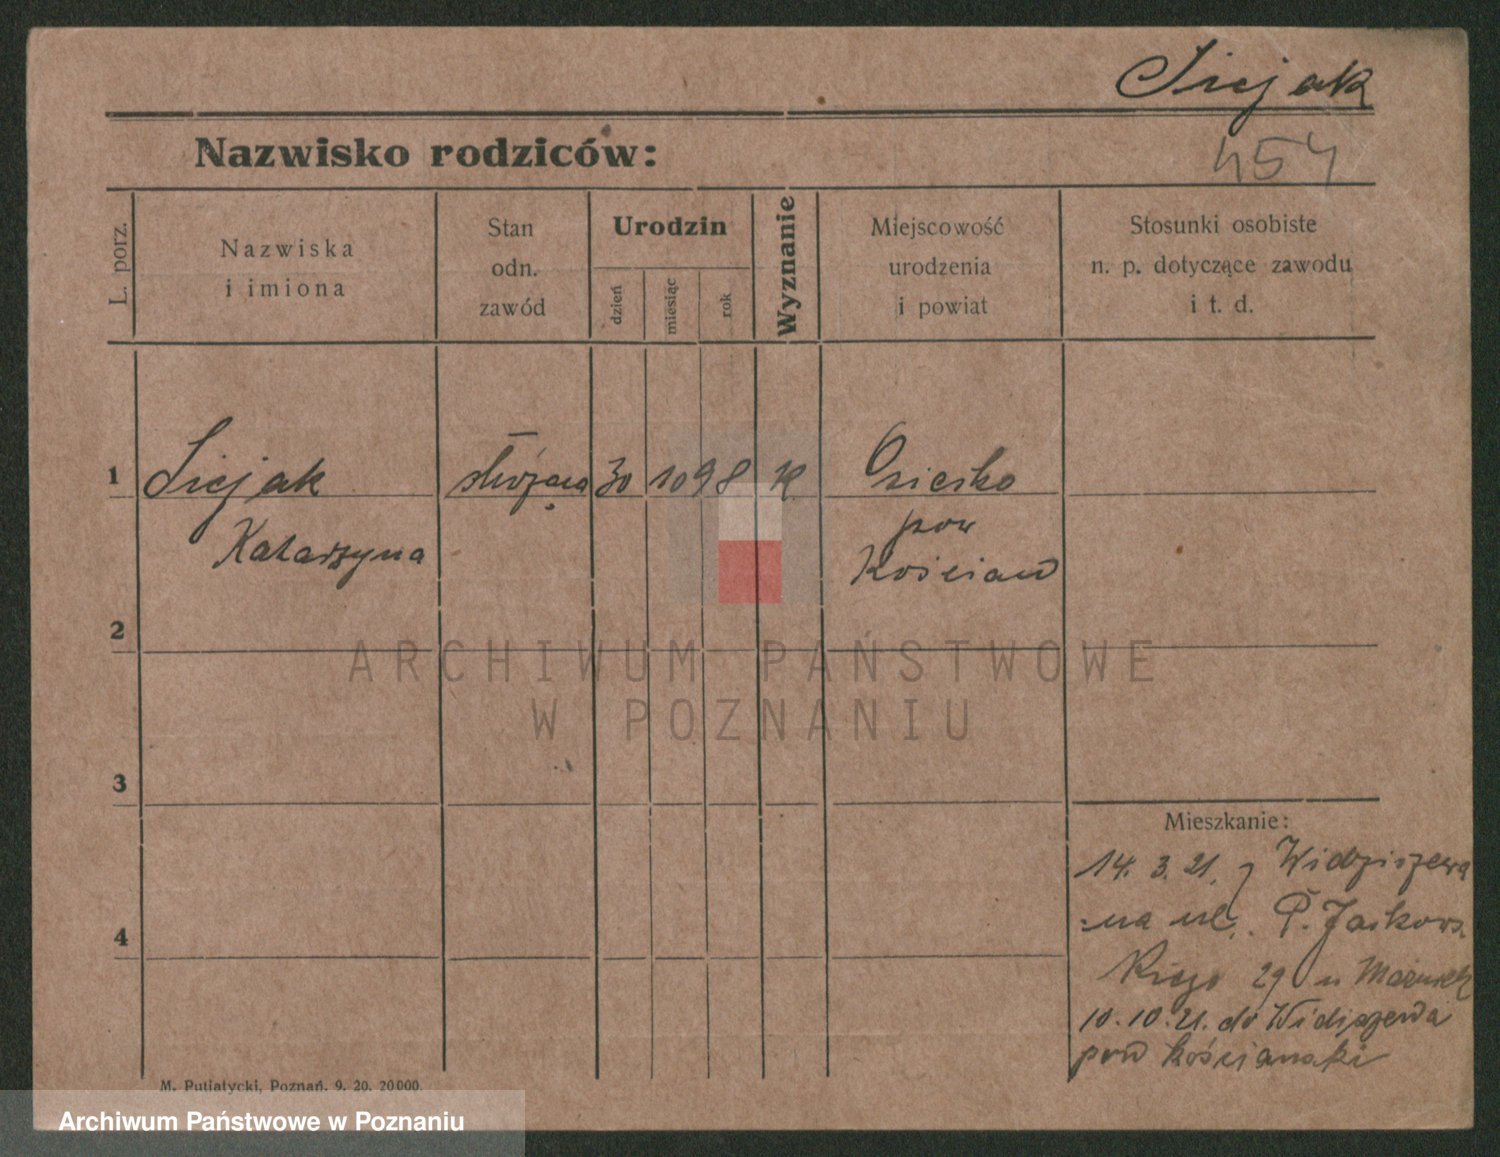 Sicjak
Nazwisko rodziców:
454
L. porz.
Nazwiska
i imiona
Stan
odn.
zawód
Urodzin
dzień
miesiąc
rok
Wyznanie
Miejscowość
urodzenia
i powiat
Stosunki osobiste
n. p. dotyczące zawodu
i t. d.
1
Sicjak
Katarzyna
służąca
30
10
98
K
Osiecko
pow
Kościan
2
3
4
Mieszkanie:
14. 3. 21. z Widziszewa
na ul. P. Jackows-
kiego 29 u
10. 10. 21. do Widziszewa
pow kościański
M. Putiatycki, Poznań. 9. 20. 20000.
ARCHIWUM PAŃSTWOWE
W POZNANIU
Archiwum Państwowe w Poznaniu